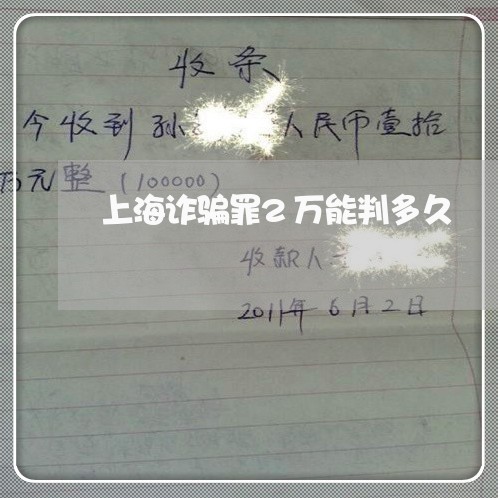 收条
今收到孙人民币壹拾
万元整（100000）
上海诈骗罪2万能判多久
收款人
2011年6月2日